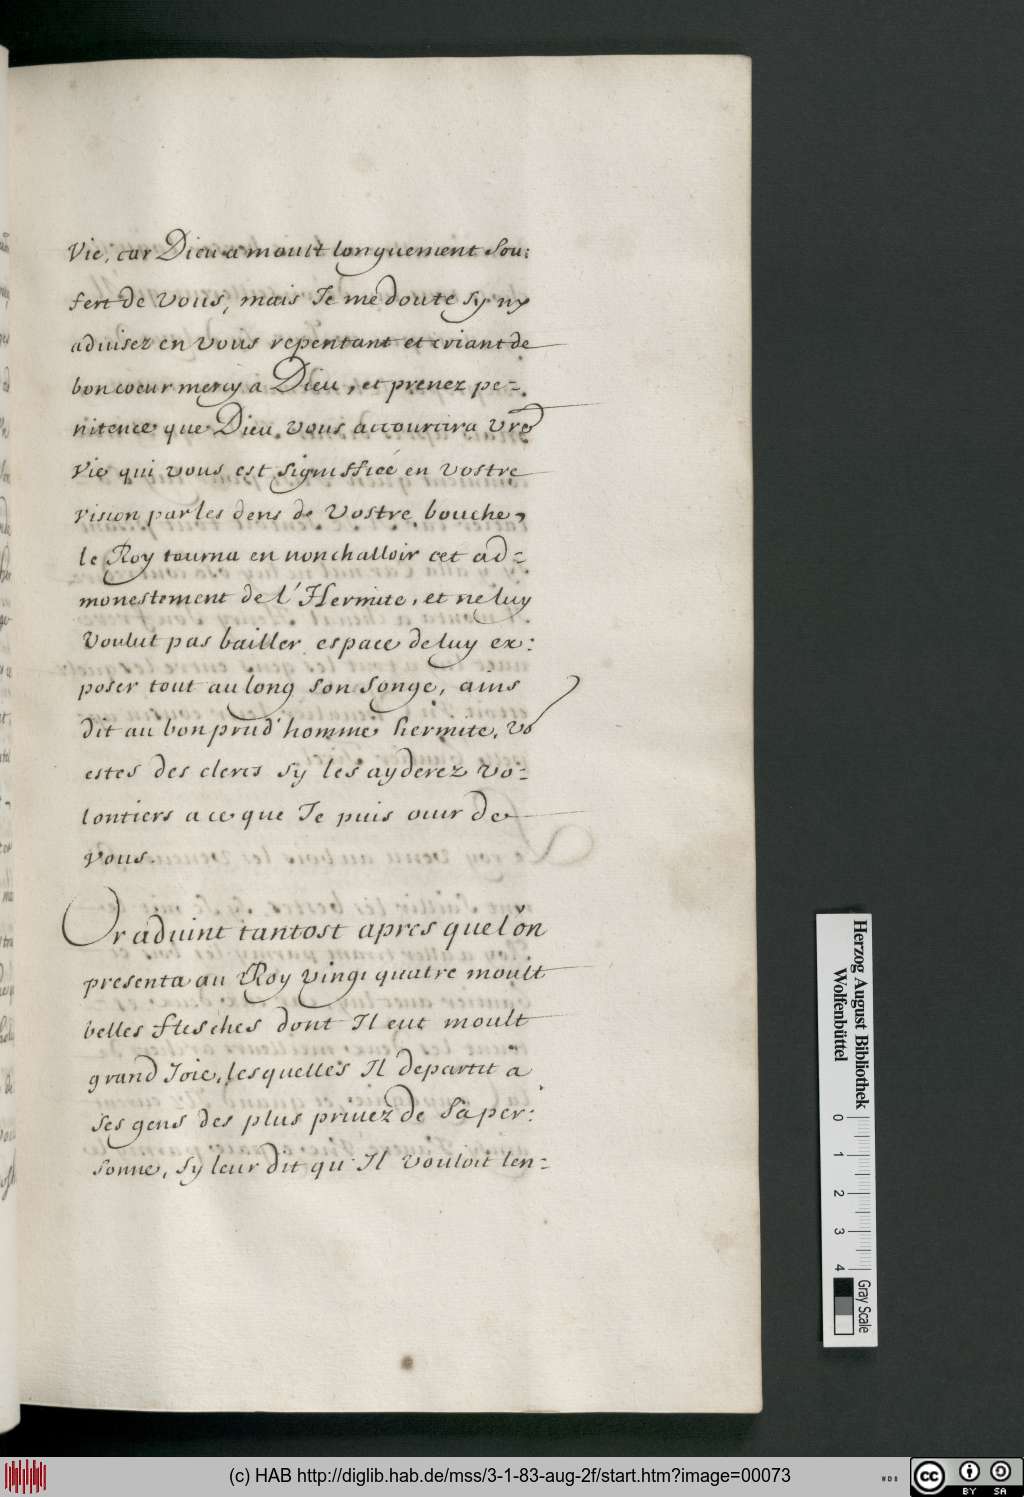 Vie, car Dieu a moult longuement sou:
fert de vous, mais Je me doute sy ny
aduisez en vous repentant et criant de
bon coeur mercy a Dieu, et prenez pe=
nitence que Dieu vous accourcira vre
vie qui vous est signifficé en vostre
vision par les dens de vostre bouche,
le Roy tourna en nonchalloir cet ad=
monestement de l'Hermite, et ne luy
voulut pas bailler espace de luy ex:
poser tout au long son songe, ains
dit au bon prud'homme hermite, vo
estes des clercs sy les ayderez vo=
lontiers a ce que Je puis ouir de
vous.
Or aduint tantost apres que lón
presenta au Roy vingt quatre moult
belles flesches dont Il eut moult
grand Joie, lesquelles Il departit a
ses gens des plus priuez de sa per:
sonne, sy leur dit qu'Il vouloit len=
Herzog August Bibliothek
Wolfenbüttel
0 1 2 3 4
Gray Scale
(c) HAB http://diglib.hab.de/mss/3-1-83-aug-2f/start.htm?image=00073
cc BY SA